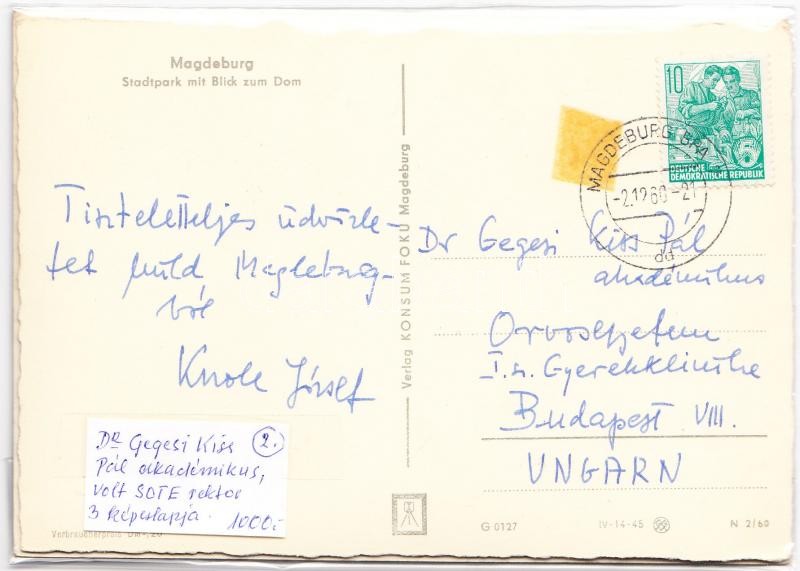 Magdeburg
Stadtpark mit Blick zum Dom
Tiszteletteljes üdvözle-
tet küld Magdeburg-
ból
József
Verlag KONSUM FOKU Magdeburg
10
5
DEUTSCHE
DEMOKRATISCHE REPUBLIK
MAGDEBURG BPA
-2.12.60-21
dd
Dr Gegesi Kiss Pál
akadémikus
Orvosegyetem
I.sz. Gyerekklinika
Budapest VIII.
UNGARN
Dr Gegesi Kiss 2.
Pál akadémikus,
volt SOTE rektor
3 képeslapja. 1000.-
Verbraucherpreis DM -,20
G 0127
IV-14-45
N 2/60